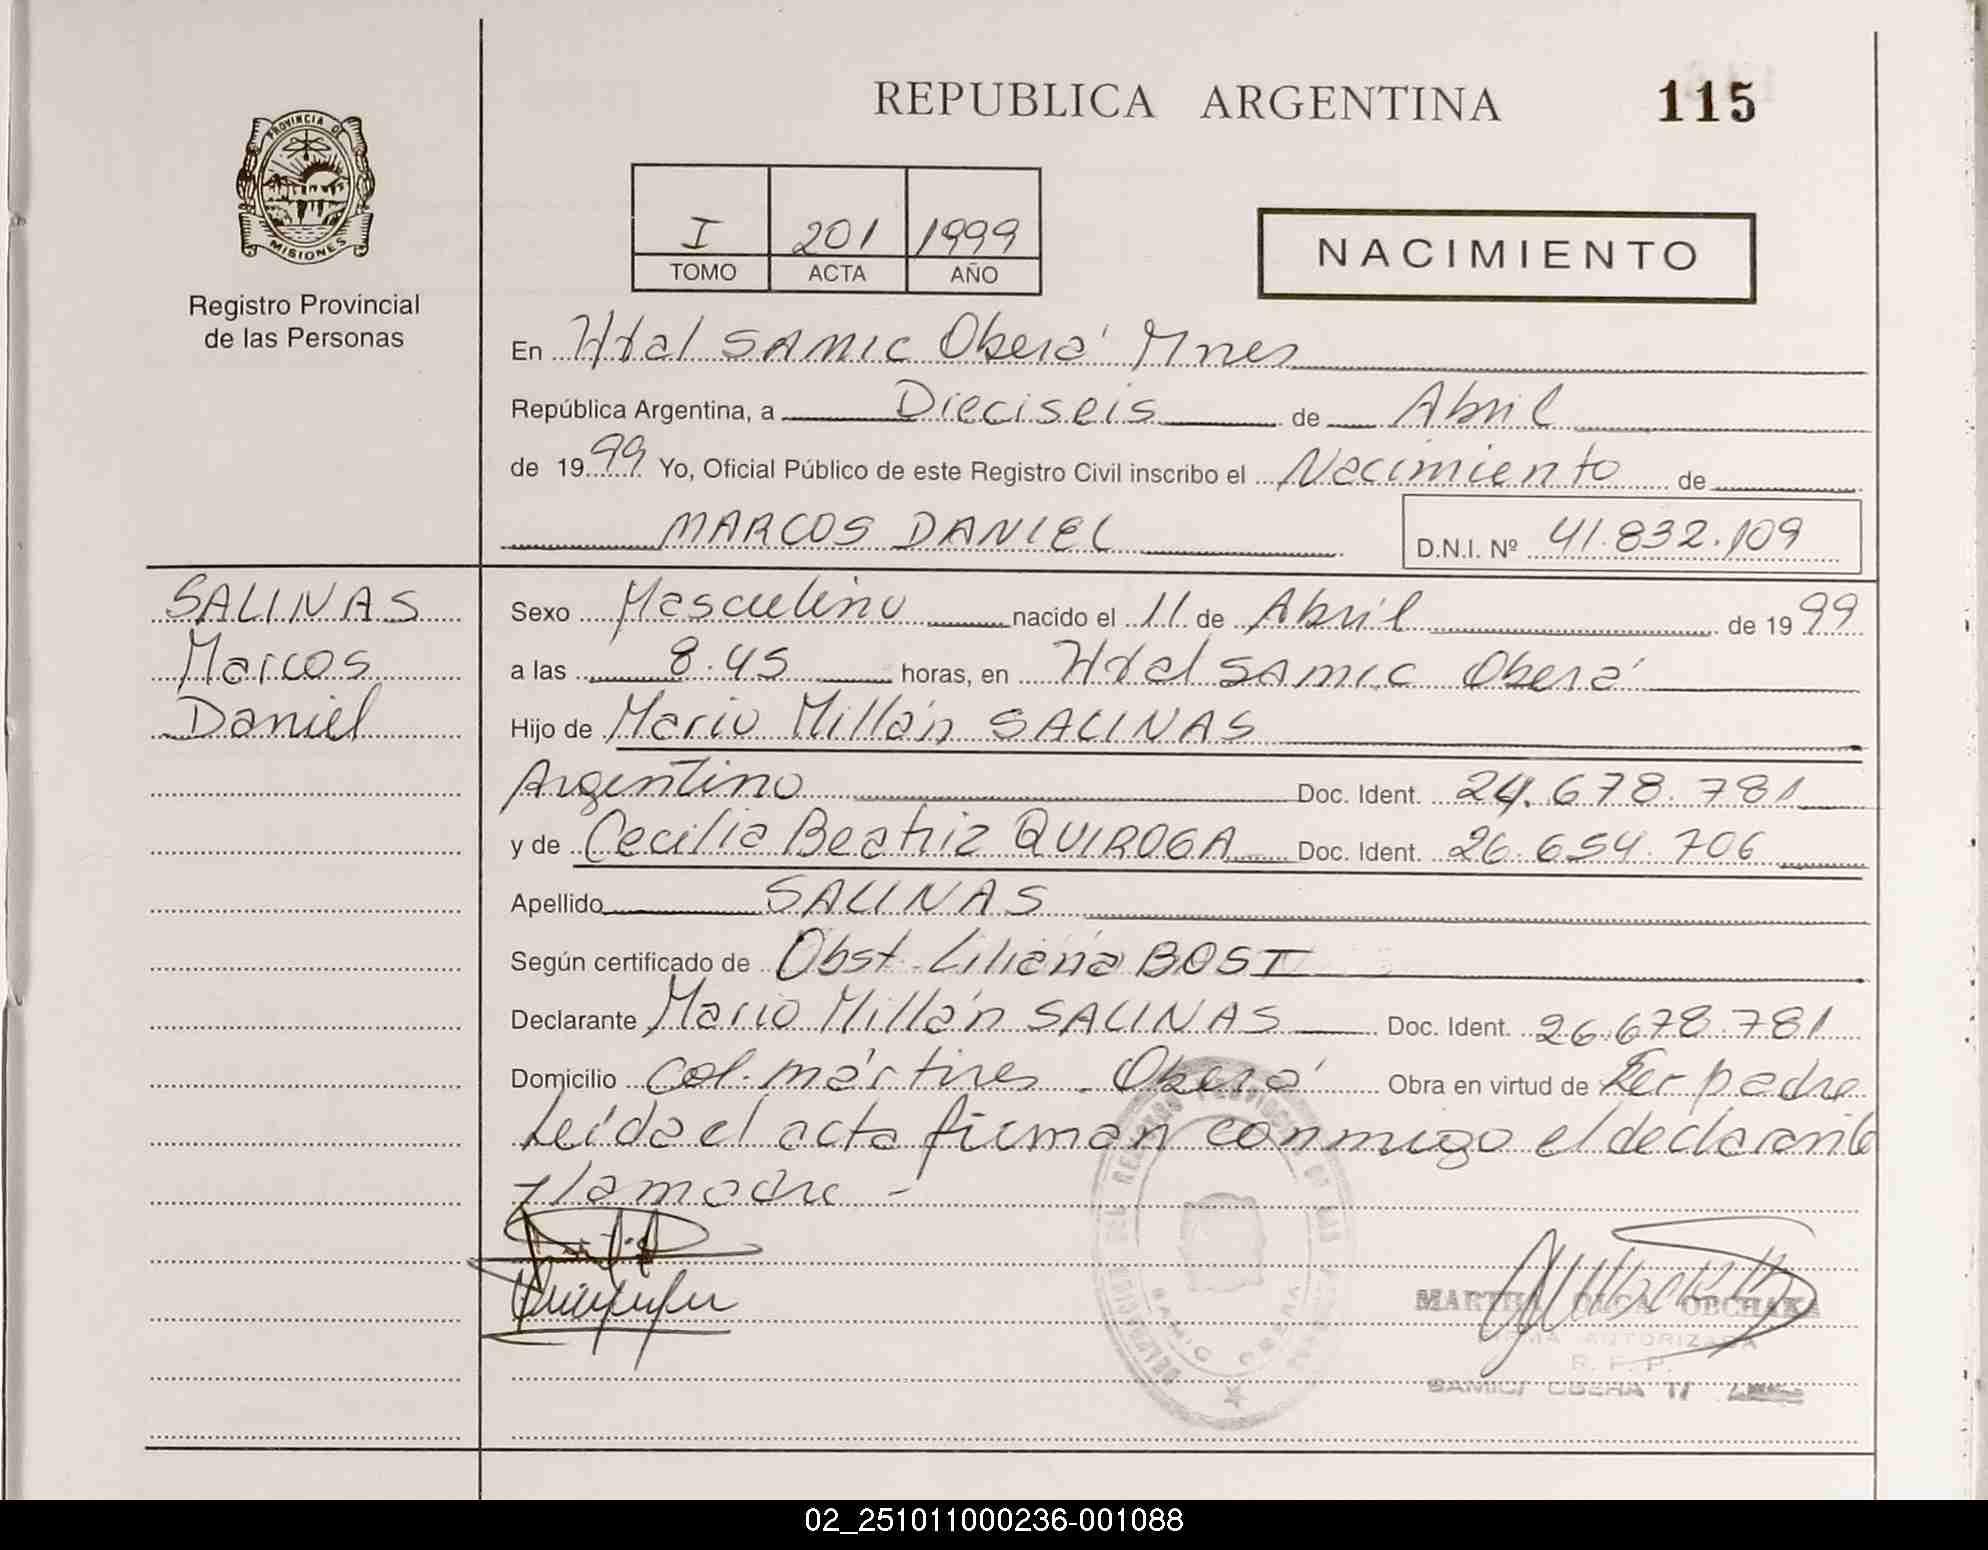 REPUBLICA ARGENTINA
115
PROVINCIA DE
MISIONES
Registro Provincial
de las Personas
I 201 1999
TOMO ACTA AÑO
NACIMIENTO
En Htal SAMIC Oberá Mnes
República Argentina, a Dieciseis de Abril
de 1999 Yo, Oficial Público de este Registro Civil inscribo el Nacimiento de
MARCOS DANIEL D.N.I. Nº 41.832.109
SALINAS
Marcos
Daniel
Sexo Masculino nacido el 11 de Abril de 1999
a las 8.45 horas, en Htal SAMIC Oberá
Hijo de Mario Millán SALINAS
Argentino Doc. Ident. 24.678.781
y de Cecilia Beatriz QUIROGA Doc. Ident. 26.654.706
Apellido SALINAS
Según certificado de Obst. Liliana BOST
Declarante Mario Millán SALINAS Doc. Ident. 26.678.781
Domicilio Col. mártires . Oberá Obra en virtud de Ser padre
Leída el acta firman conmigo el declarante
y la madre -
MARTHA OLGA OBCHAKA
FIRMA AUTORIZADA
R. P. P.
SAMIC/ OBERA
02_251011000236-001088